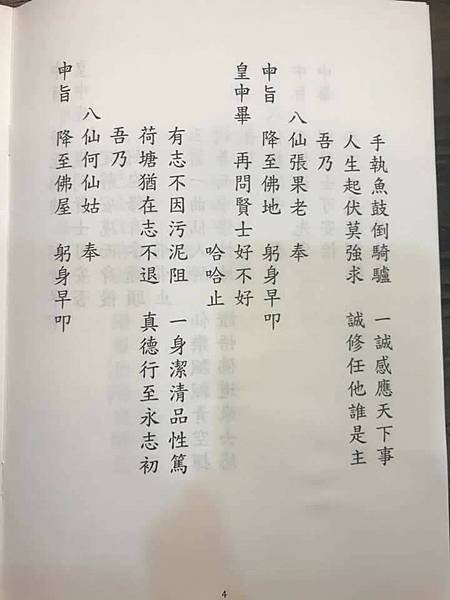 手執魚鼓倒騎驢　一誠感應天下事
人生起伏莫強求　誠修任他誰是主
吾乃
八仙張果老　奉
申旨　降至佛地　躬身早叩
皇申畢　再問賢士好不好
哈哈止
有志不因污泥阻　一身潔清品性篤
荷塘猶在志不退　真德行至永志初
吾乃
八仙何仙姑　奉
申旨　降至佛屋　躬身早叩
4